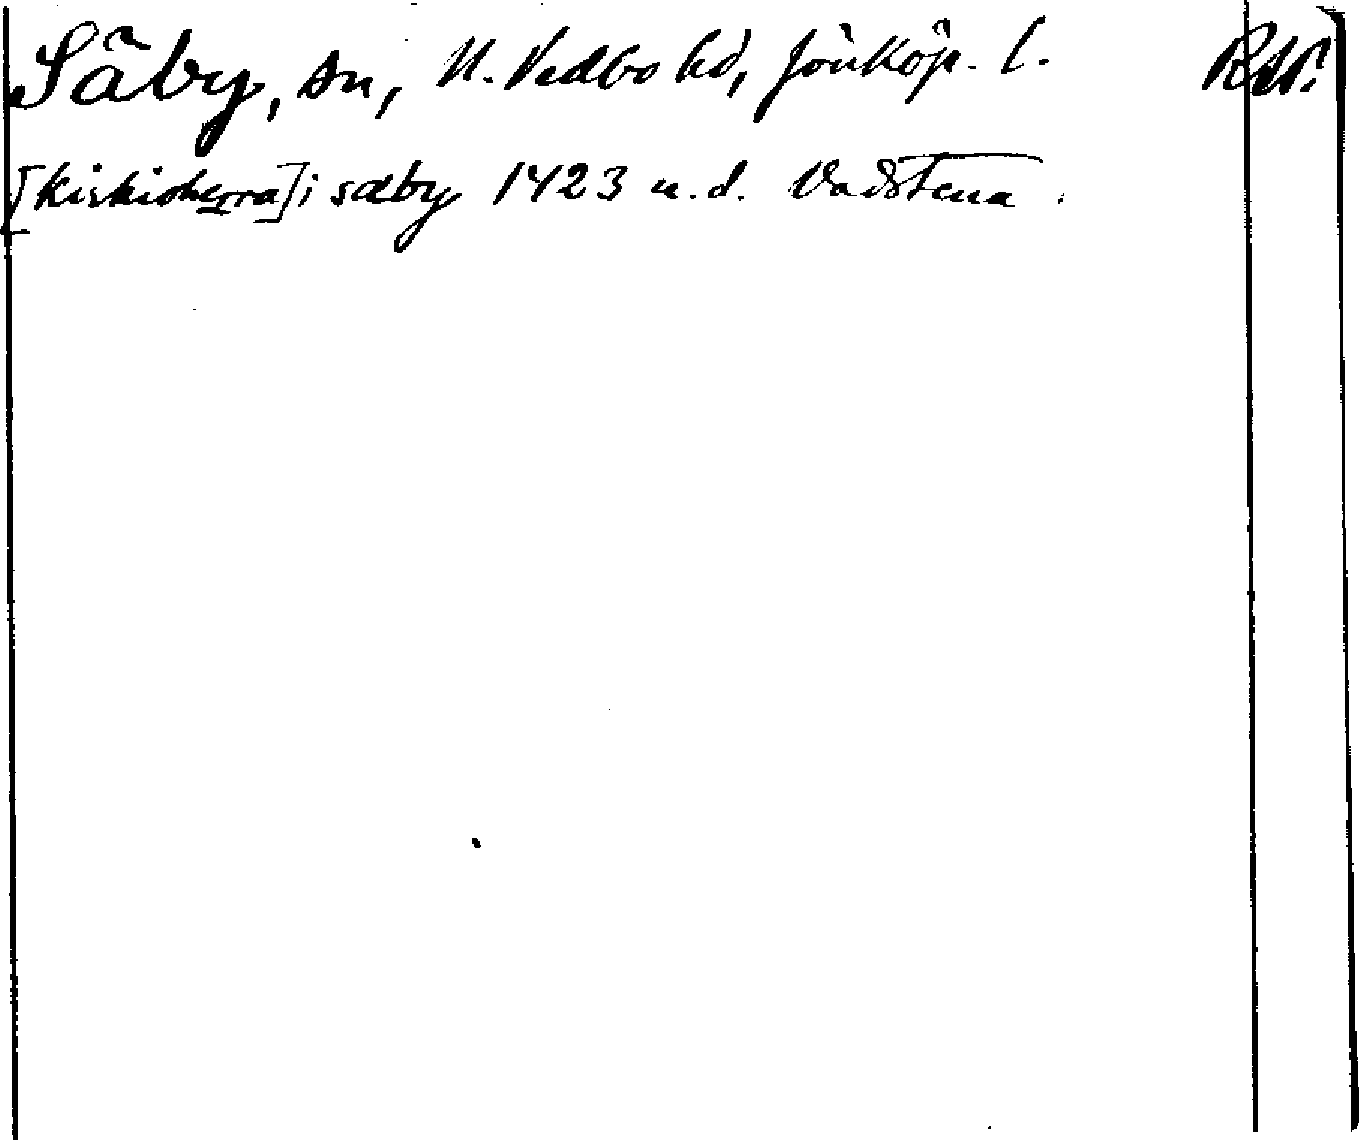 Säby, sn, N. Vedbo hd, Jönköp. l. RAP.
[kirkioherra] i sæby 1423 u.d. Vadstena.